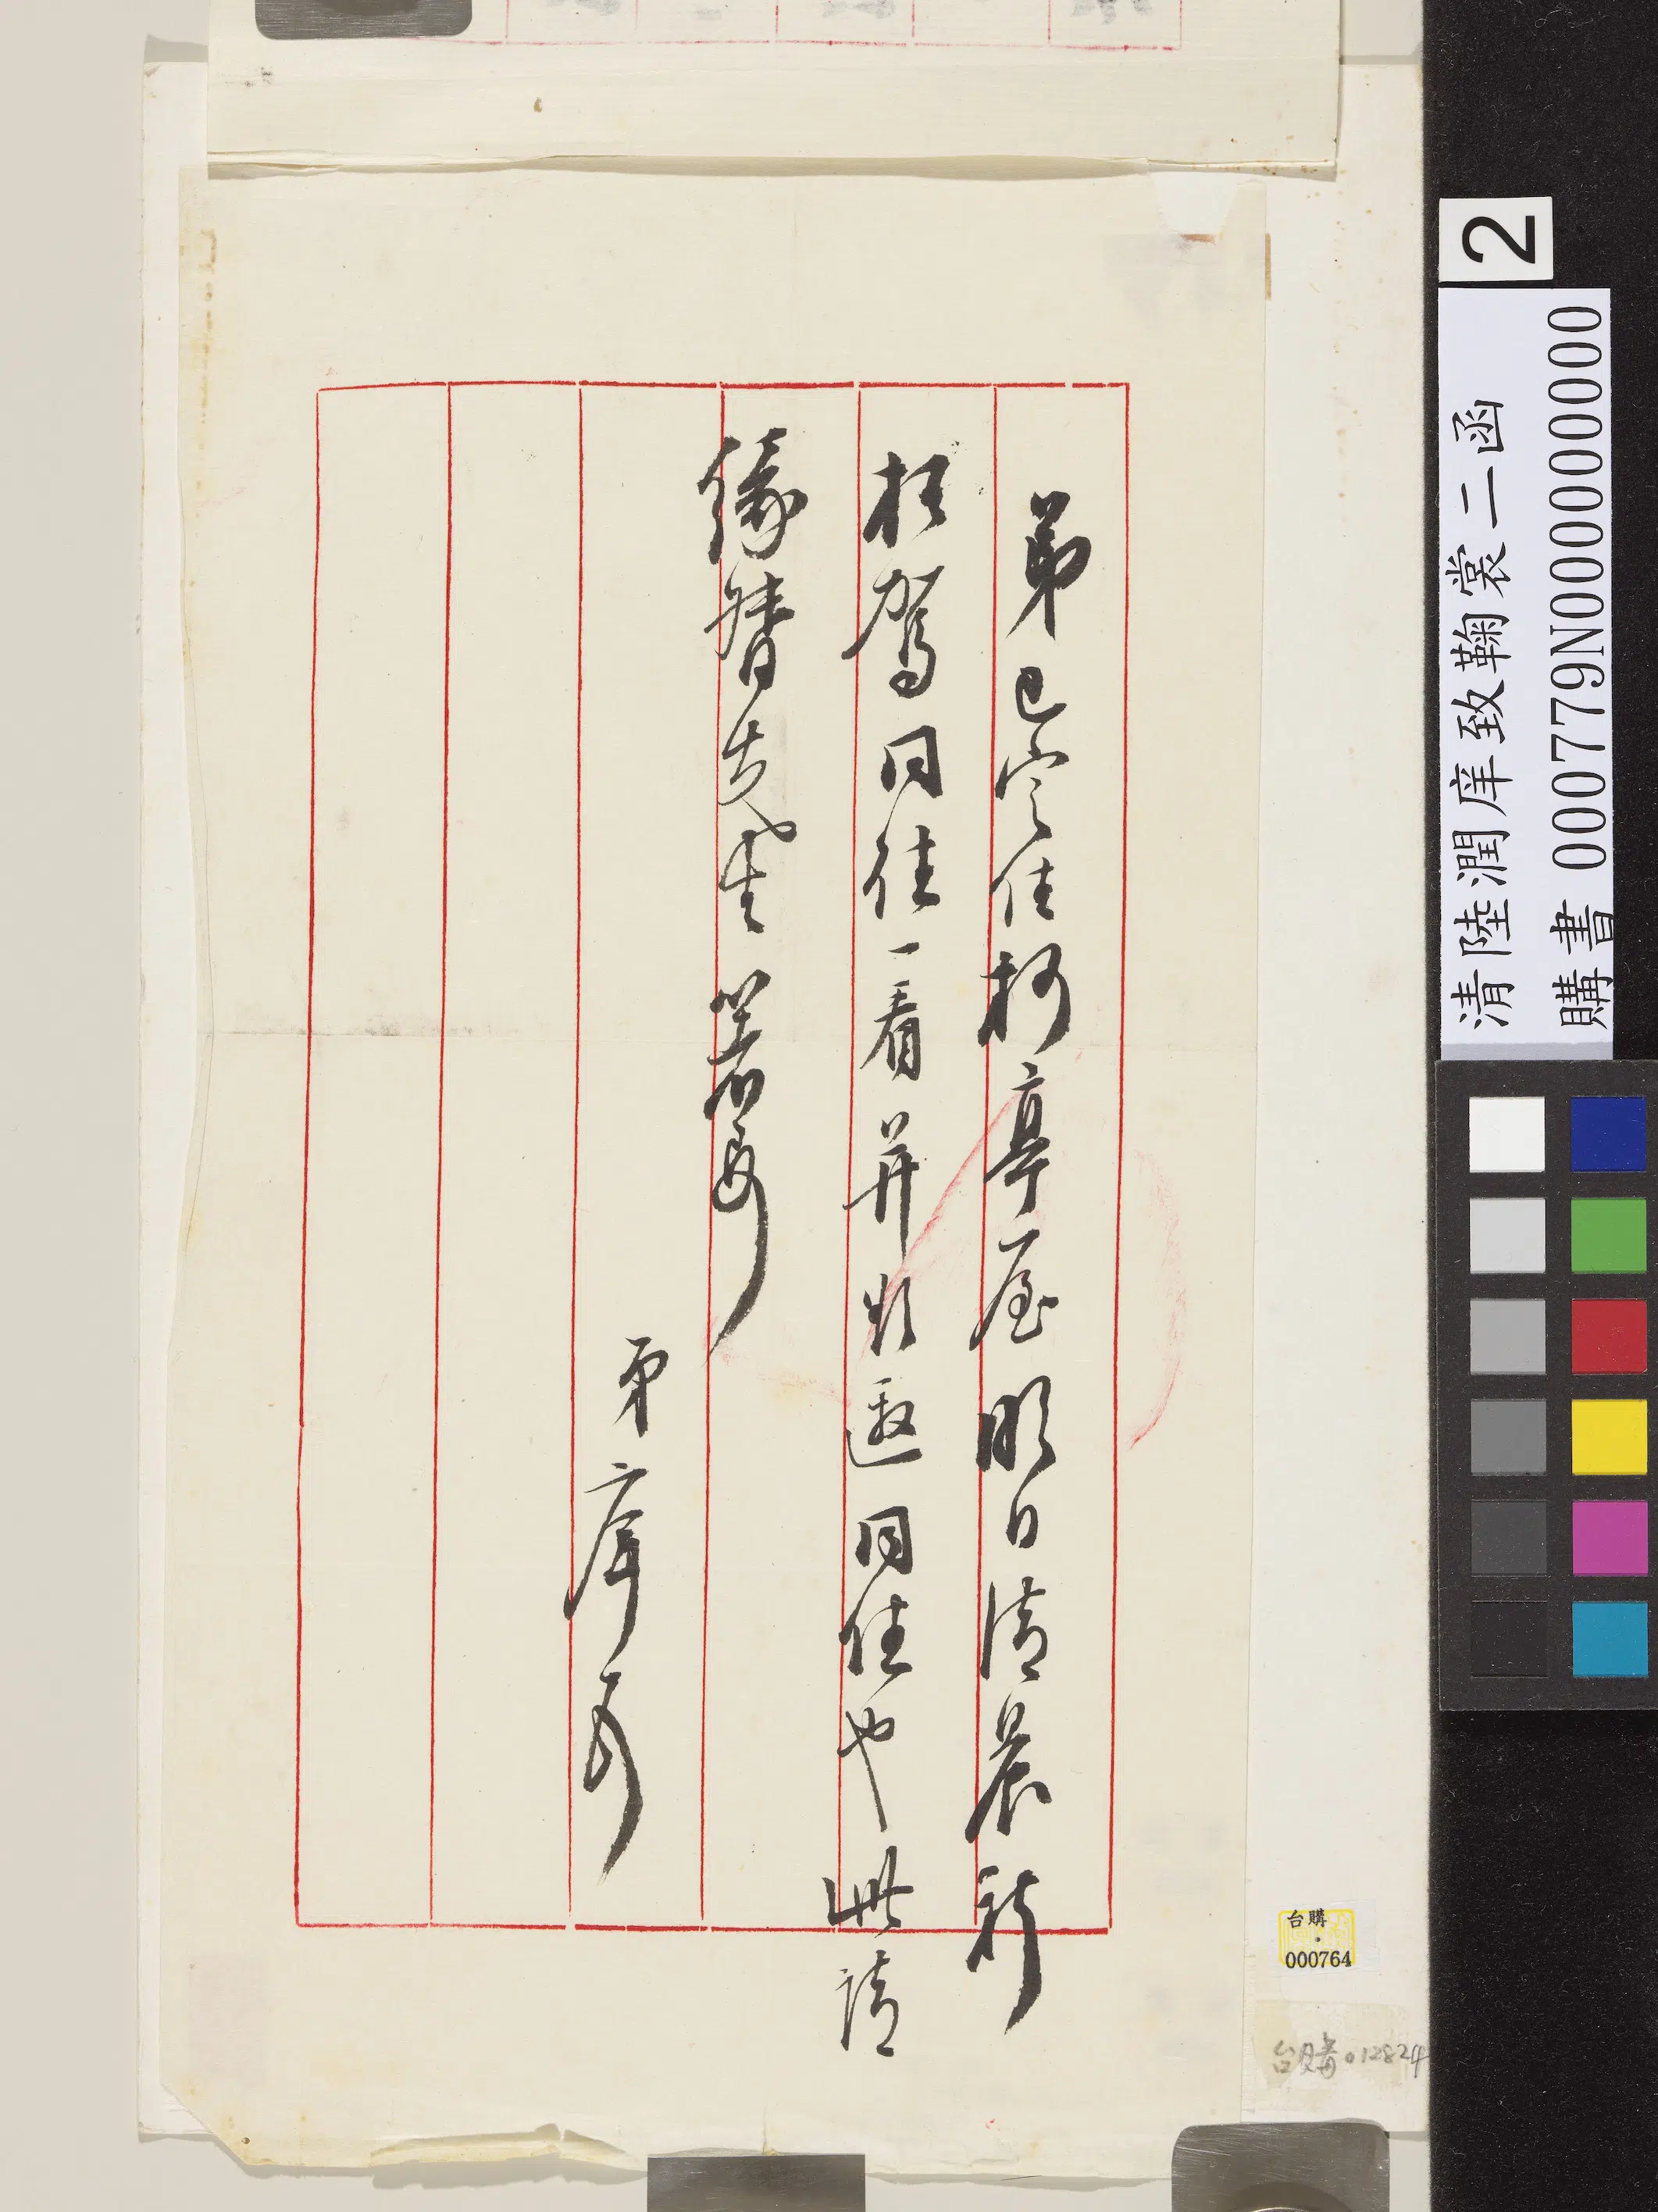 弟已定住柯亭屋明日清晨祈
枉駕同往一看并煩邀同住也此請
緣督先生箸安
弟庠頓
2
清陸潤庠致鞠裳二函
購書 000779N000000000
台購
000764
台購012824